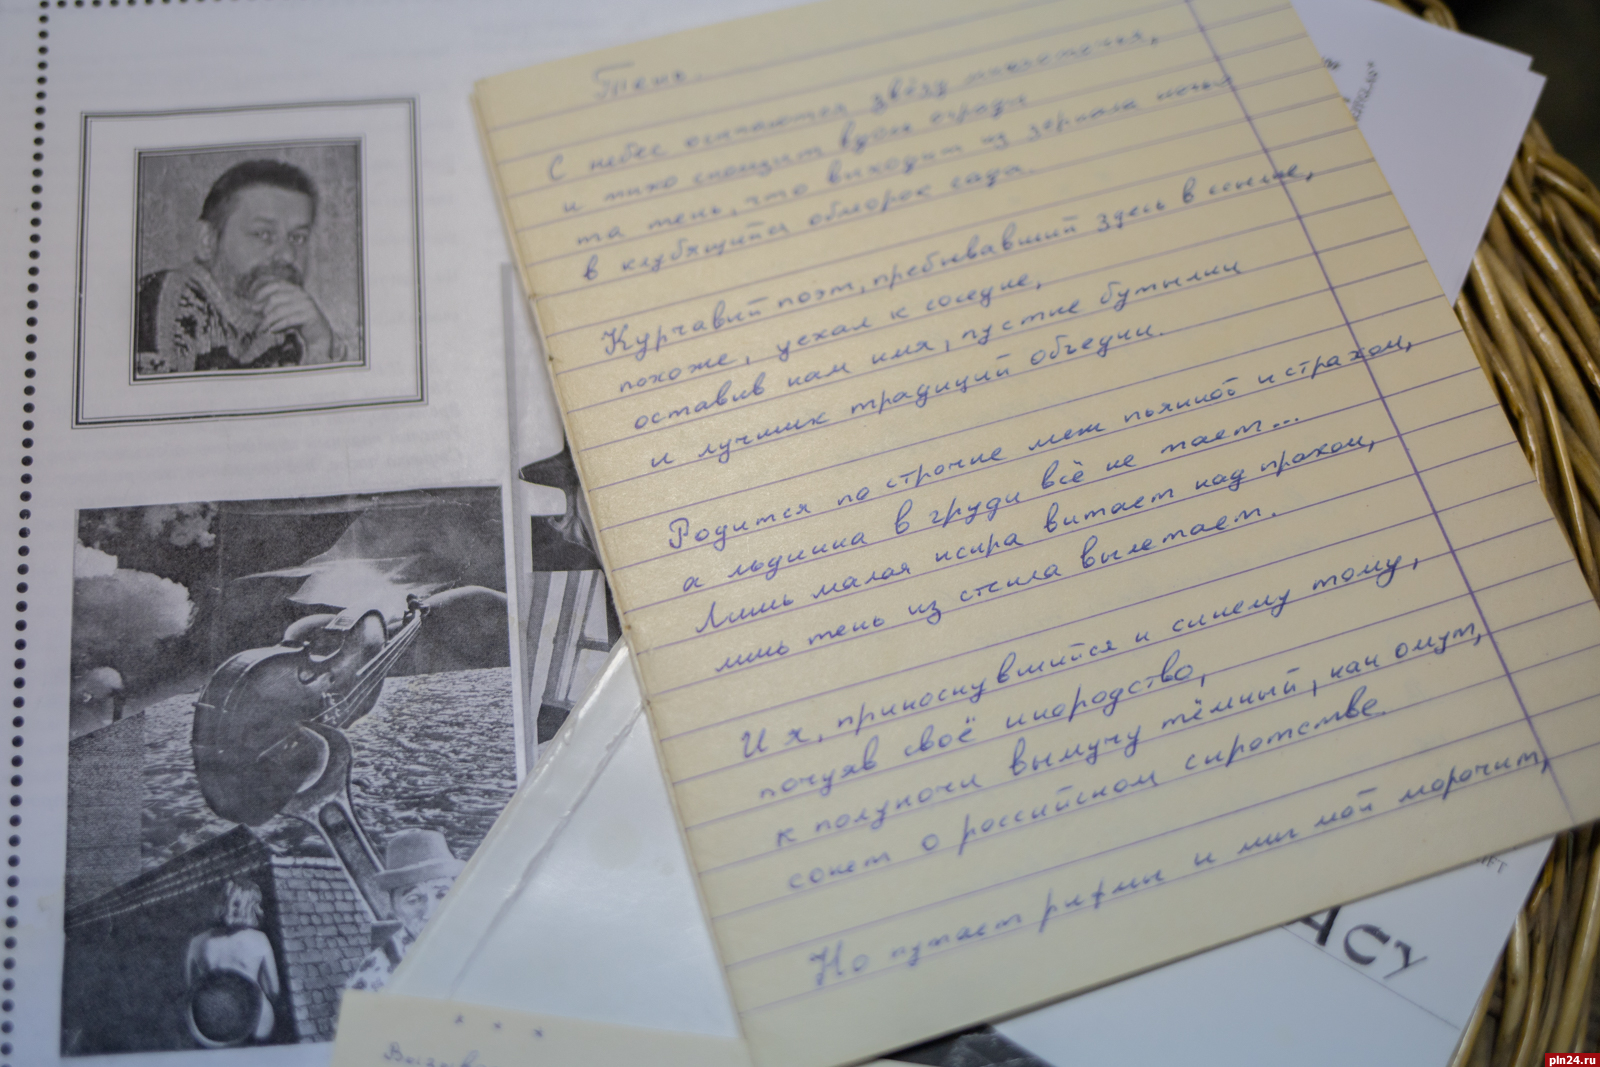 Тень.
С небес осыпаются звёзд многоточья,
и тихо скользит вдоль ограды
та тень, что выходит из зеркала ночью
в клубящийся обморок сада.
Курчавый поэт, пребывавший здесь в ссылке,
похоже, уехал к соседке,
оставив нам имя, пустые бутылки
и лучших традиций объедки.
Родится по строчке меж пьянкой и страхом,
а льдинка в груди всё не тает...
Лишь малая искра витает над прахом,
лишь тень из стекла вылетает.
И я, прикоснувшийся к синему тому,
почуяв своё инородство,
к полуночи вымучу тёмный, как омут,
сонет о российском сиротстве.
Но путает рифмы и миг мой морочит,
* * *
ACY
pln24.ru